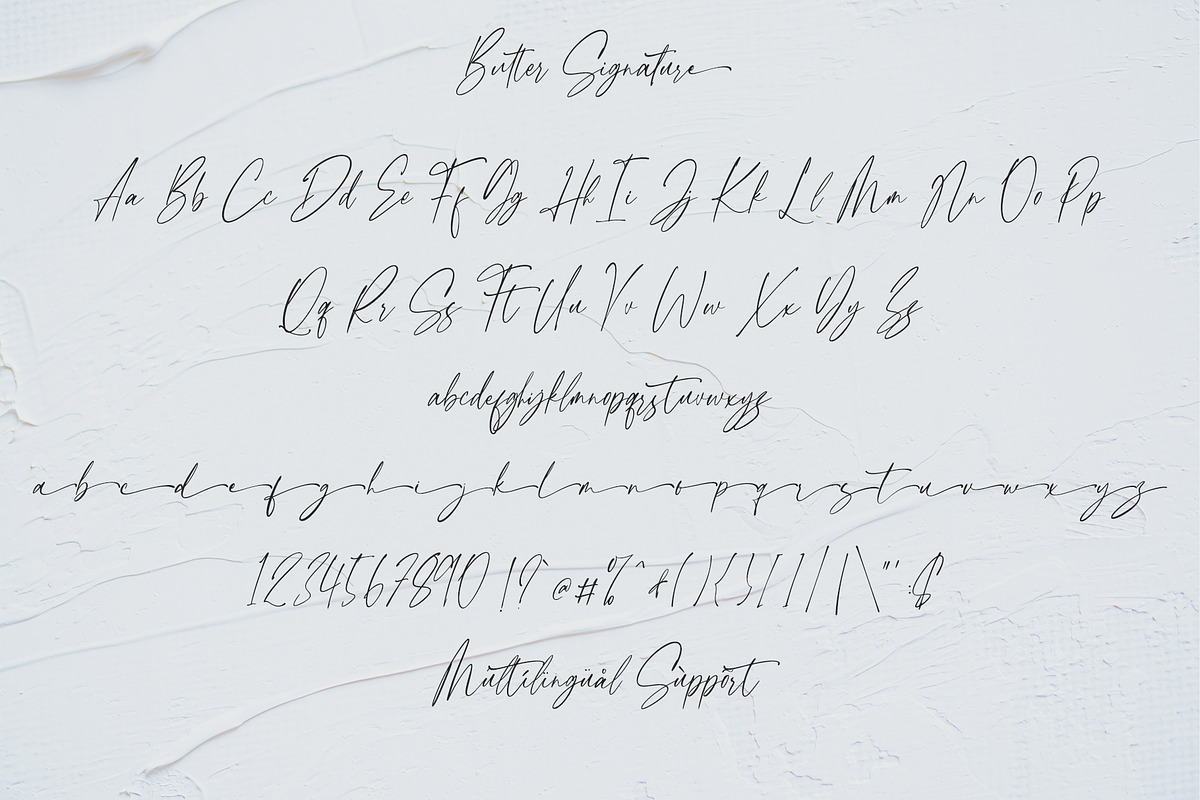 Butter Signature
Aa Bb Cc Dd Ee Ff Gg Hh Ii Jj Kk Ll Mm Nn Oo Pp
Qq Rr Ss Tt Uu Vv Ww Xx Yy Zz
abcdefghijklmnopqrstuvwxyz
a b c d e f g h i j k l m n o p q r s t u v w x y z
1234567890 !?` @#%^&(){}[]/|\"':;$
Mùltílíngüål Sùppõrt